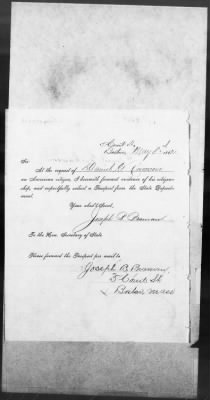 Court St.
Boston, May
Sir:
At the request of Daniel
an American citizen, I herewith forward evidence of his citizen-
ship, and respectfully solicit a Passport from the State Depart-
ment.
Your obd't Serv't,
Joseph B.
To the Hon. Secretary of State
Please forward the Passport per mail to
Joseph B.
Court St.
Boston Mass